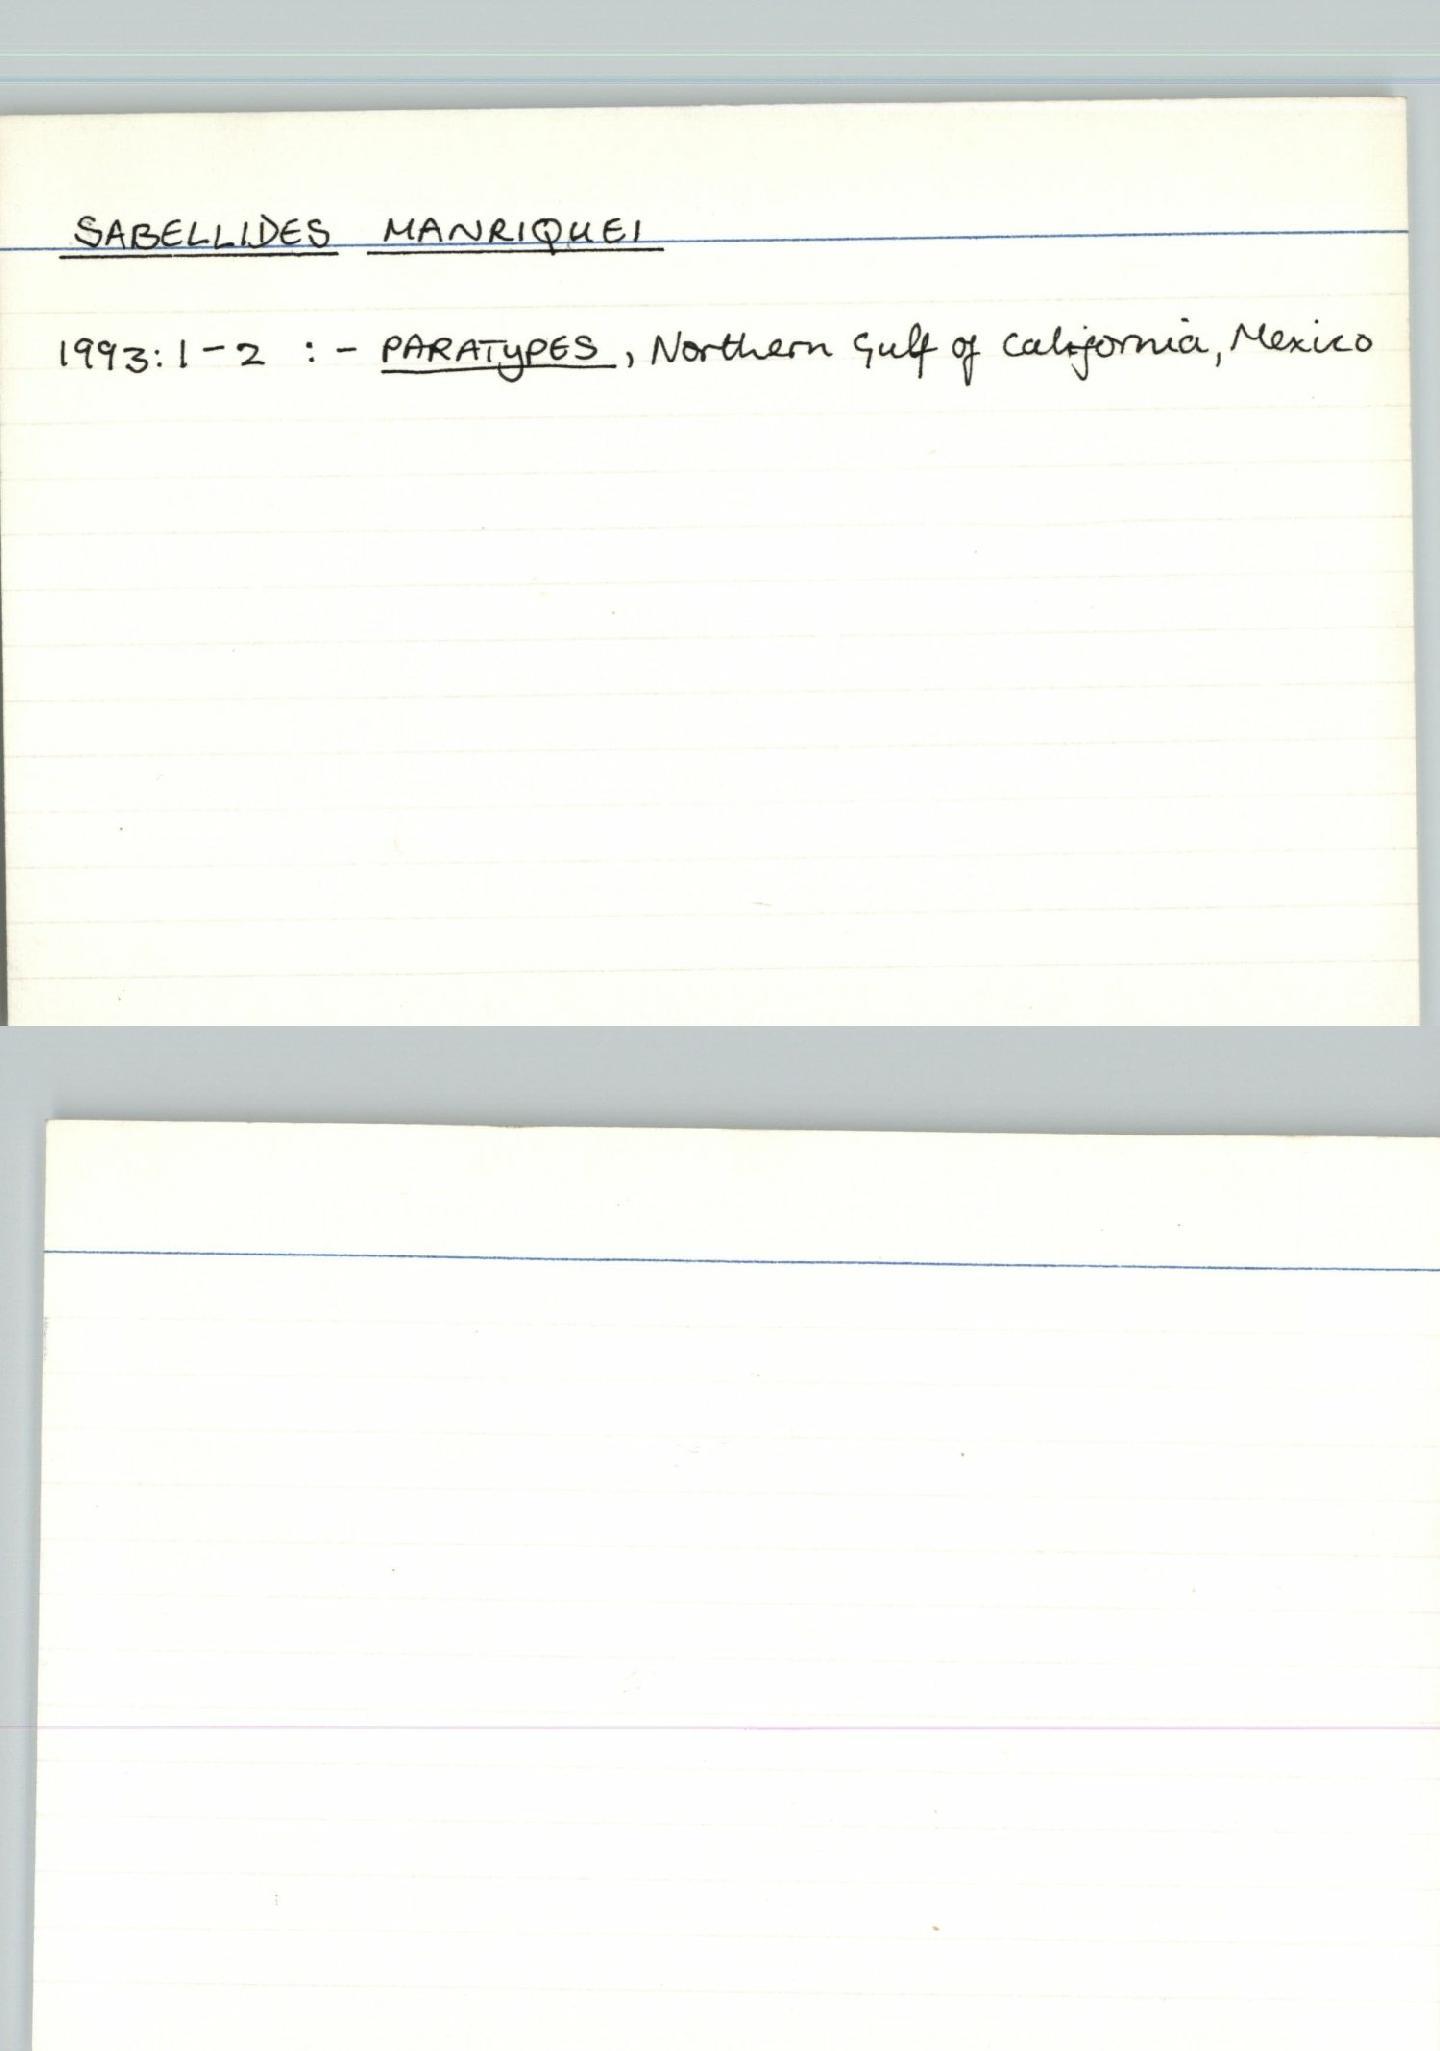 SABELLIDES MANRIQUEI
1993:1-2 :- PARATYPES, Northern Gulf of California, Mexico